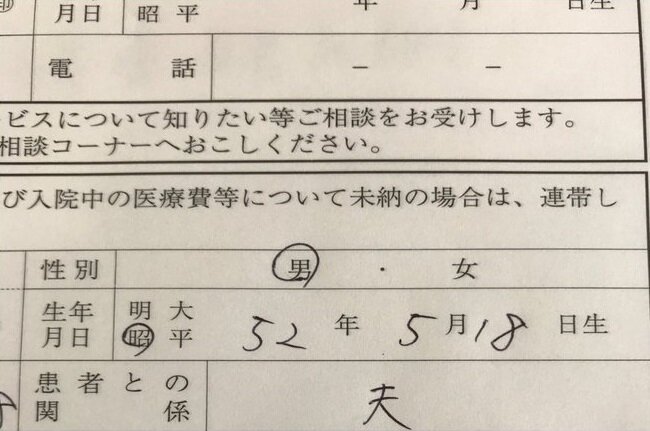 月日 昭 平 年 月 日生
電話 － －
ービスについて知りたい等ご相談をお受けします。
相談コーナーへおこしください。
び入院中の医療費等について未納の場合は、連帯し
性別 男 ・ 女
生年 明 大
月日 昭 平 52 年 5月18 日生
患者との
関係 夫